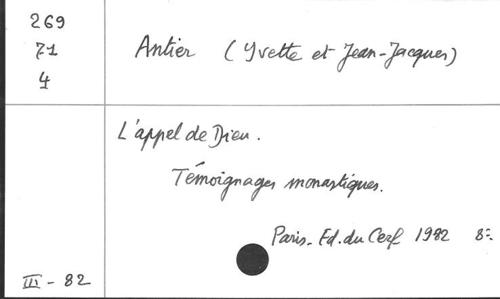 269
71
4
Antier (Yvette et Jean-Jacques)
L'appel de Dieu.
Témoignages monastiques.
Paris. Ed. du Cerf 1982 8º
III - 82